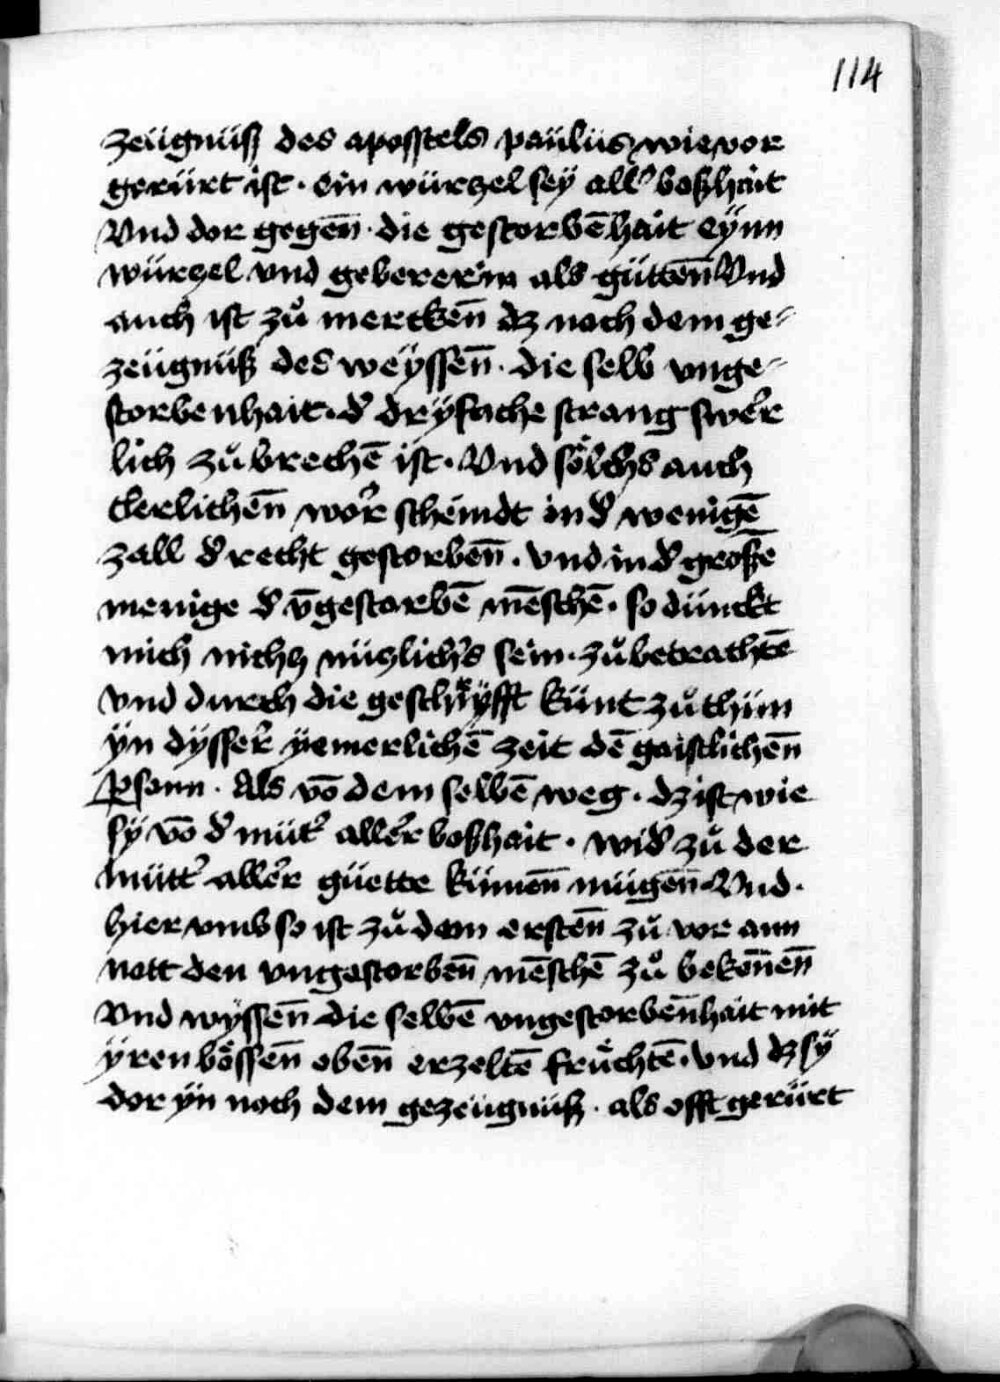 114
zeügnüß des aposstels paülüs wie vor
gerürt ist · ein würzel sey all' boßhait
Vnd dor gegen̄ · die gestorbēhait eÿnn
würzel vnd gebererin als güttēn Vnd
auch ist zů merckēn dz noch dem ge-
zeügnüß des weÿssēn · die selb vnge-
storbenhait · d' drÿfache strang swer'
lich zůbrechē ist · Vnd sölchs auch
clerlichēn wor' scheindt in d' wenigē
zall d' recht gestorbēn · vnd in d' großē
menige d' v̄gestorbē mēschē · so dünckt
mich nichtz nüzlich's sein · zůbetrachtē
vnd durch die geschrÿfft künt zůthün
ÿn dÿsser' ÿemerlichē zeit dē gaistlichēn
ꝑsonn · Als vō dem selbē weg · dz ist wie
sÿ vō d' müt' aller' boßhait · wid' zů der
mütt' aller' güette kümēn mügēn Vnd ·
hier vmb so ist zů dem erstēn zů vor ann
nott den vngestorbēn mēschē zů bekēnēn
Vnd wÿssēn die selbē vngestorbēnhait mit
ÿren bössēn obēn erzeltē früchtē · vnd dz sÿ
dor ÿn noch dem gezeügnüß · als offt gerürt